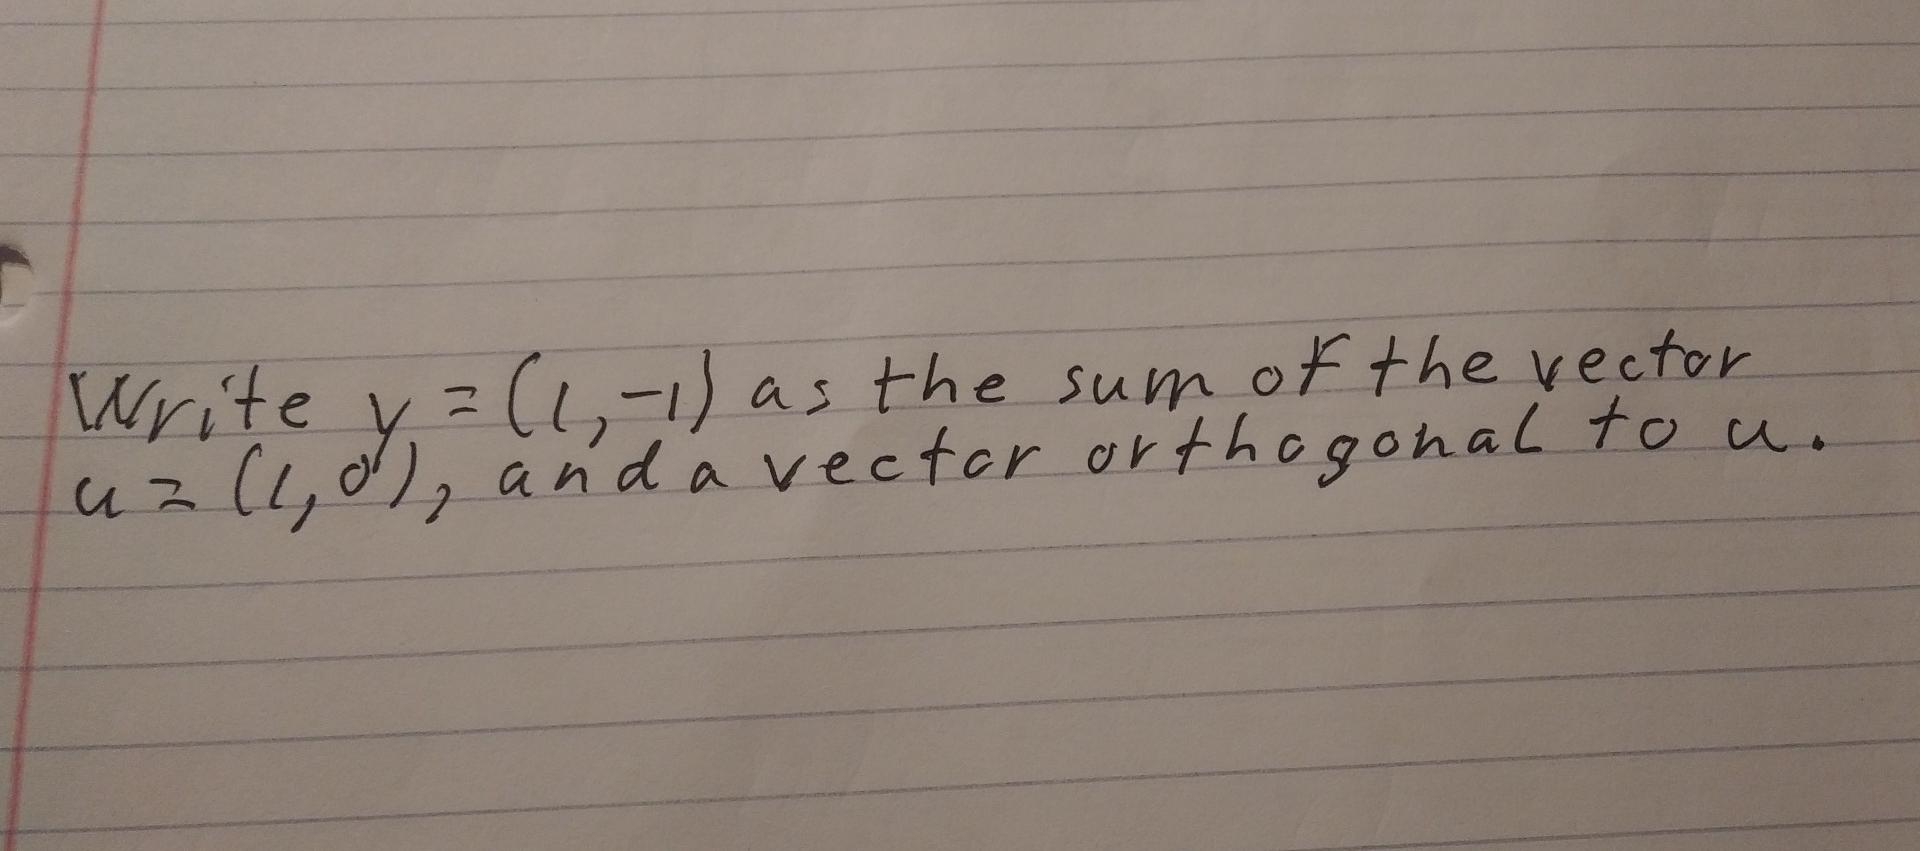 Write y = (1,-1) as the sum of the vector
u = (1,0), and a vector orthogonal to u.